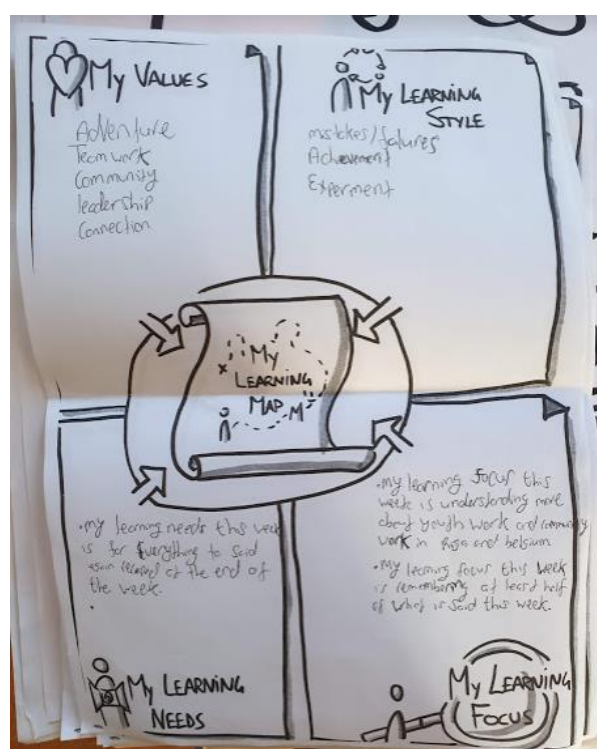 My Values
Adventure
Teamwork
Community
leadership
Connection
My Learning
Style
mistakes/falures
Achievement
Experment
My
Learning
Map
• my learning needs this week
is for Everything to said
again at the end of
the week.
•
My Learning
Needs
• my learning focus this
week is understanding more
about youth work and community
work in and belgium
• my learning focus this week
is remembering at least half
of what is said this week.
My Learning
Focus